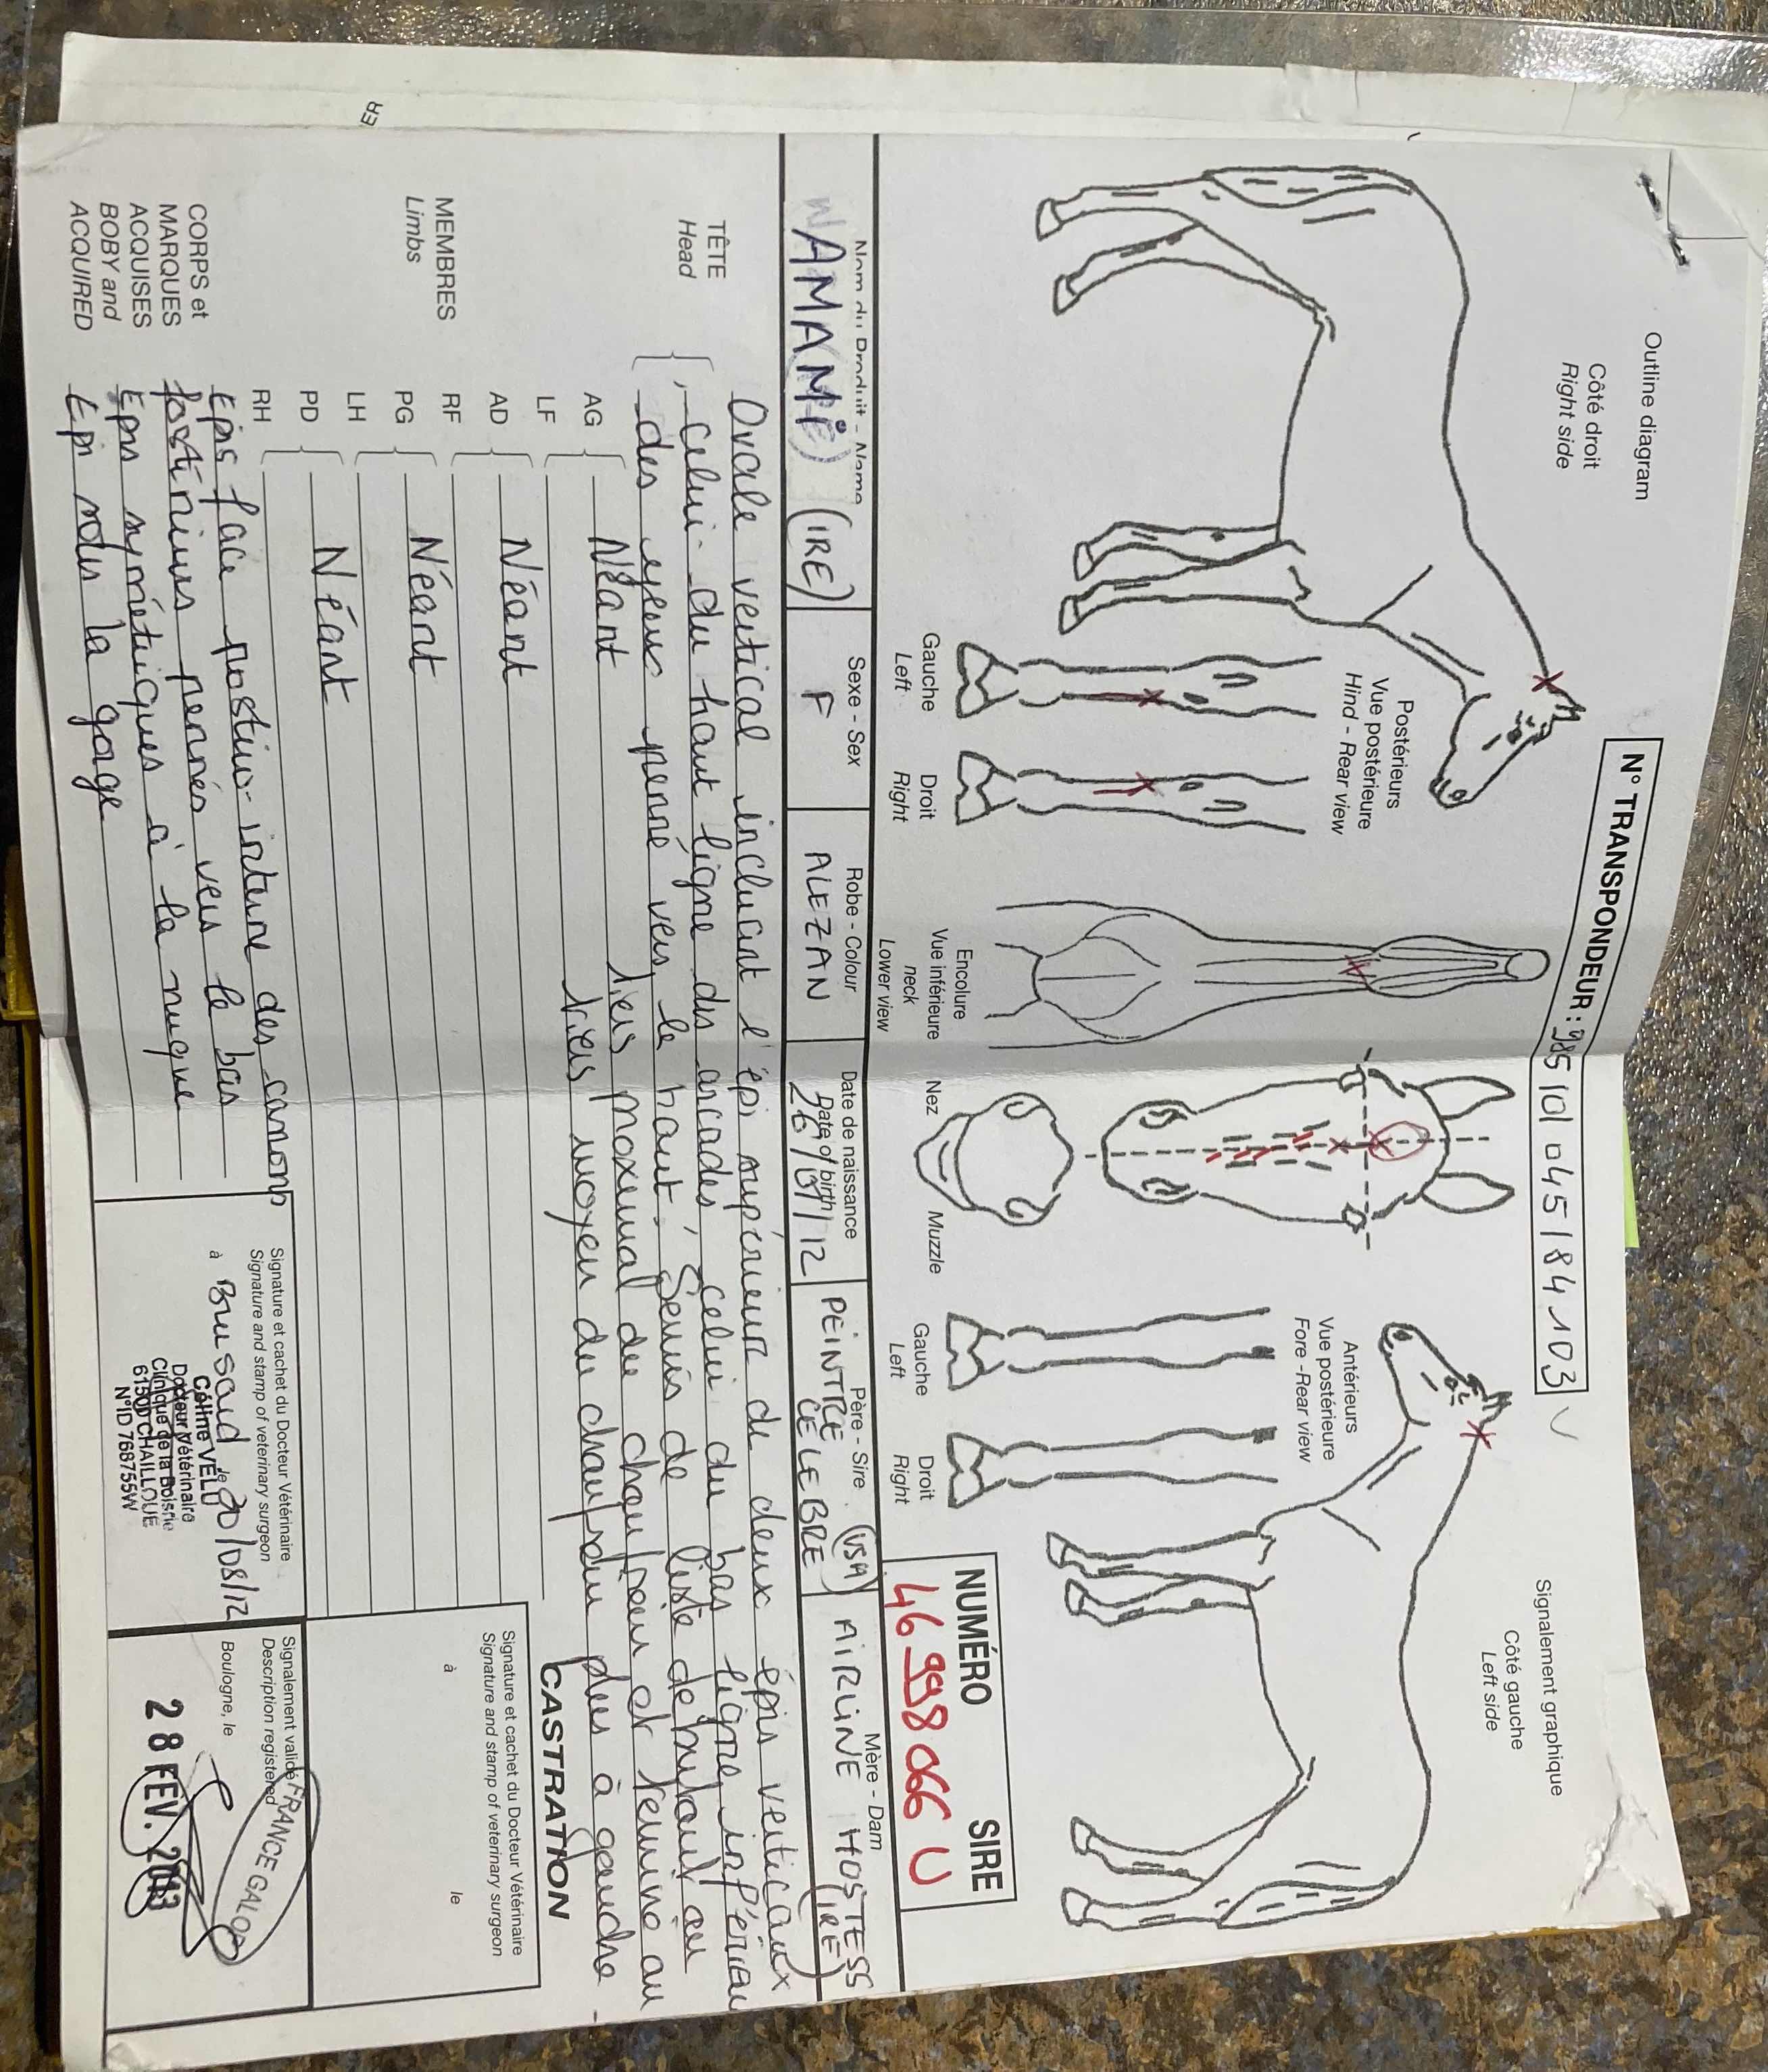 ER
Outline diagram
Signalement graphique
Côté droit
Right side
N° TRANSPONDEUR : 985 101 045 184 103
Côté gauche
Left side
Postérieurs
Vue postérieure
Hind - Rear view
Antérieurs
Vue postérieure
Fore - Rear view
Gauche
Left
Droit
Right
Encolure
Vue inférieure
neck
Lower view
Nez
Muzzle
Gauche
Left
Droit
Right
NUMÉRO SIRE
46 998 066 U
Nom du Produit - Name
WAMAMÉ (IRE)
Sexe - Sex
F
Robe - Colour
ALEZAN
Date de naissance
Date of birth
26/01/12
Père - Sire
PEINTRE CELEBRE (USA)
Mère - Dam
AIRLINE HOSTESS (IRE)
TÊTE
Head
Ovale vertical incluant l'épi supérieur de deux épis verticaux
, celui du haut ligne des arcades, celui du bas ligne inférieur
des yeux penné vers le haut. Suivis de liste débutant au
tiers moyen du chanfrein et terminé au
tiers moyen du chanfrein plus à gauche.
MEMBRES
Limbs
AG
LF
Néant
AD
RF
Néant
PG
LH
Néant
PD
RH
Néant
CASTRATION
CORPS et
MARQUES
ACQUISES
BOBY and
ACQUIRED
Epis face postéro-interne des canons
postérieurs pennés vers le bas
Epis symétriques à la nuque
Epi sous la gorge
Signature et cachet du Docteur Vétérinaire
Signature and stamp of veterinary surgeon
à
le
Signature et cachet du Docteur Vétérinaire
Signature and stamp of veterinary surgeon
à Bursard le 20/08/12
Céline VELD
Docteur Vétérinaire
Clinique de la Boisrie
61500 CHAILLOUE
N°ID 76875W
Signalement validé
Description registered
FRANCE GALOP
Boulogne, le
28 FEV. 2013